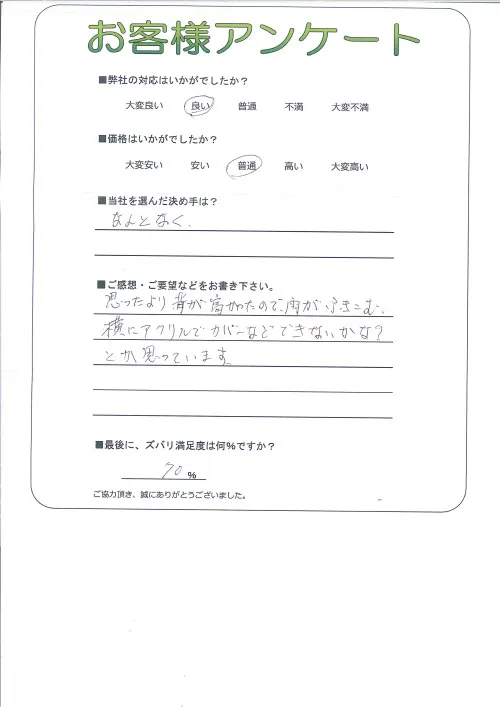 お客様アンケート
■弊社の対応はいかがでしたか？
大変良い 良い 普通 不満 大変不満
■価格はいかがでしたか？
大変安い 安い 普通 高い 大変高い
■当社を選んだ決め手は？
なんとなく、
■ご感想・ご要望などをお書き下さい。
思ったより背が高かったので、雨がふきこむ、
横にアクリルでカバーなどできないかな？
とか思っています。
■最後に、ズバリ満足度は何％ですか？
70 ％
ご協力頂き、誠にありがとうございました。